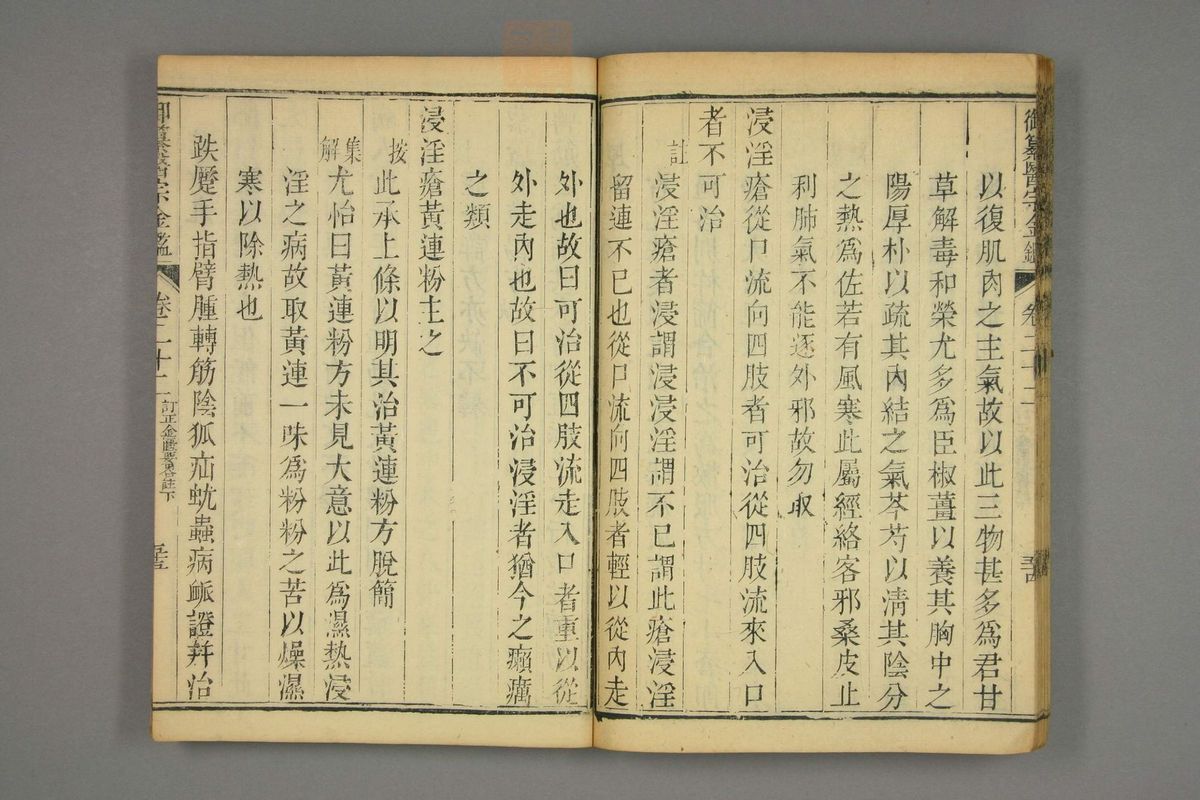 御纂醫宗金鑑 卷二十二
以復肌肉之主氣故以此三物甚多爲君甘
草解毒和榮尤多爲臣椒薑以養其胸中之
陽厚朴以疏其內結之氣芩芍以淸其陰分
之熱爲佐若有風寒此屬經絡客邪桑皮止
利肺氣不能逐外邪故勿取
浸淫瘡從口流向四肢者可治從四肢流來入口
者不可治
註
浸淫瘡者浸謂浸浸淫謂不已謂此瘡浸淫
留連不已也從口流向四肢者輕以從內走
外也故曰可治從四肢流走入口者重以從
外走內也故曰不可治浸淫者猶今之癩癘
之類
浸淫瘡黃連粉主之
按
此承上條以明其治黃連粉方脫簡
集解
尤怡曰黃連粉方未見大意以此爲濕熱浸
淫之病故取黃連一味爲粉粉之苦以燥濕
寒以除熱也
趺蹷手指臂腫轉筋陰狐疝蚘蟲病脈證幷治
御纂醫宗金鑑 卷二十二 訂正金匱要略註下